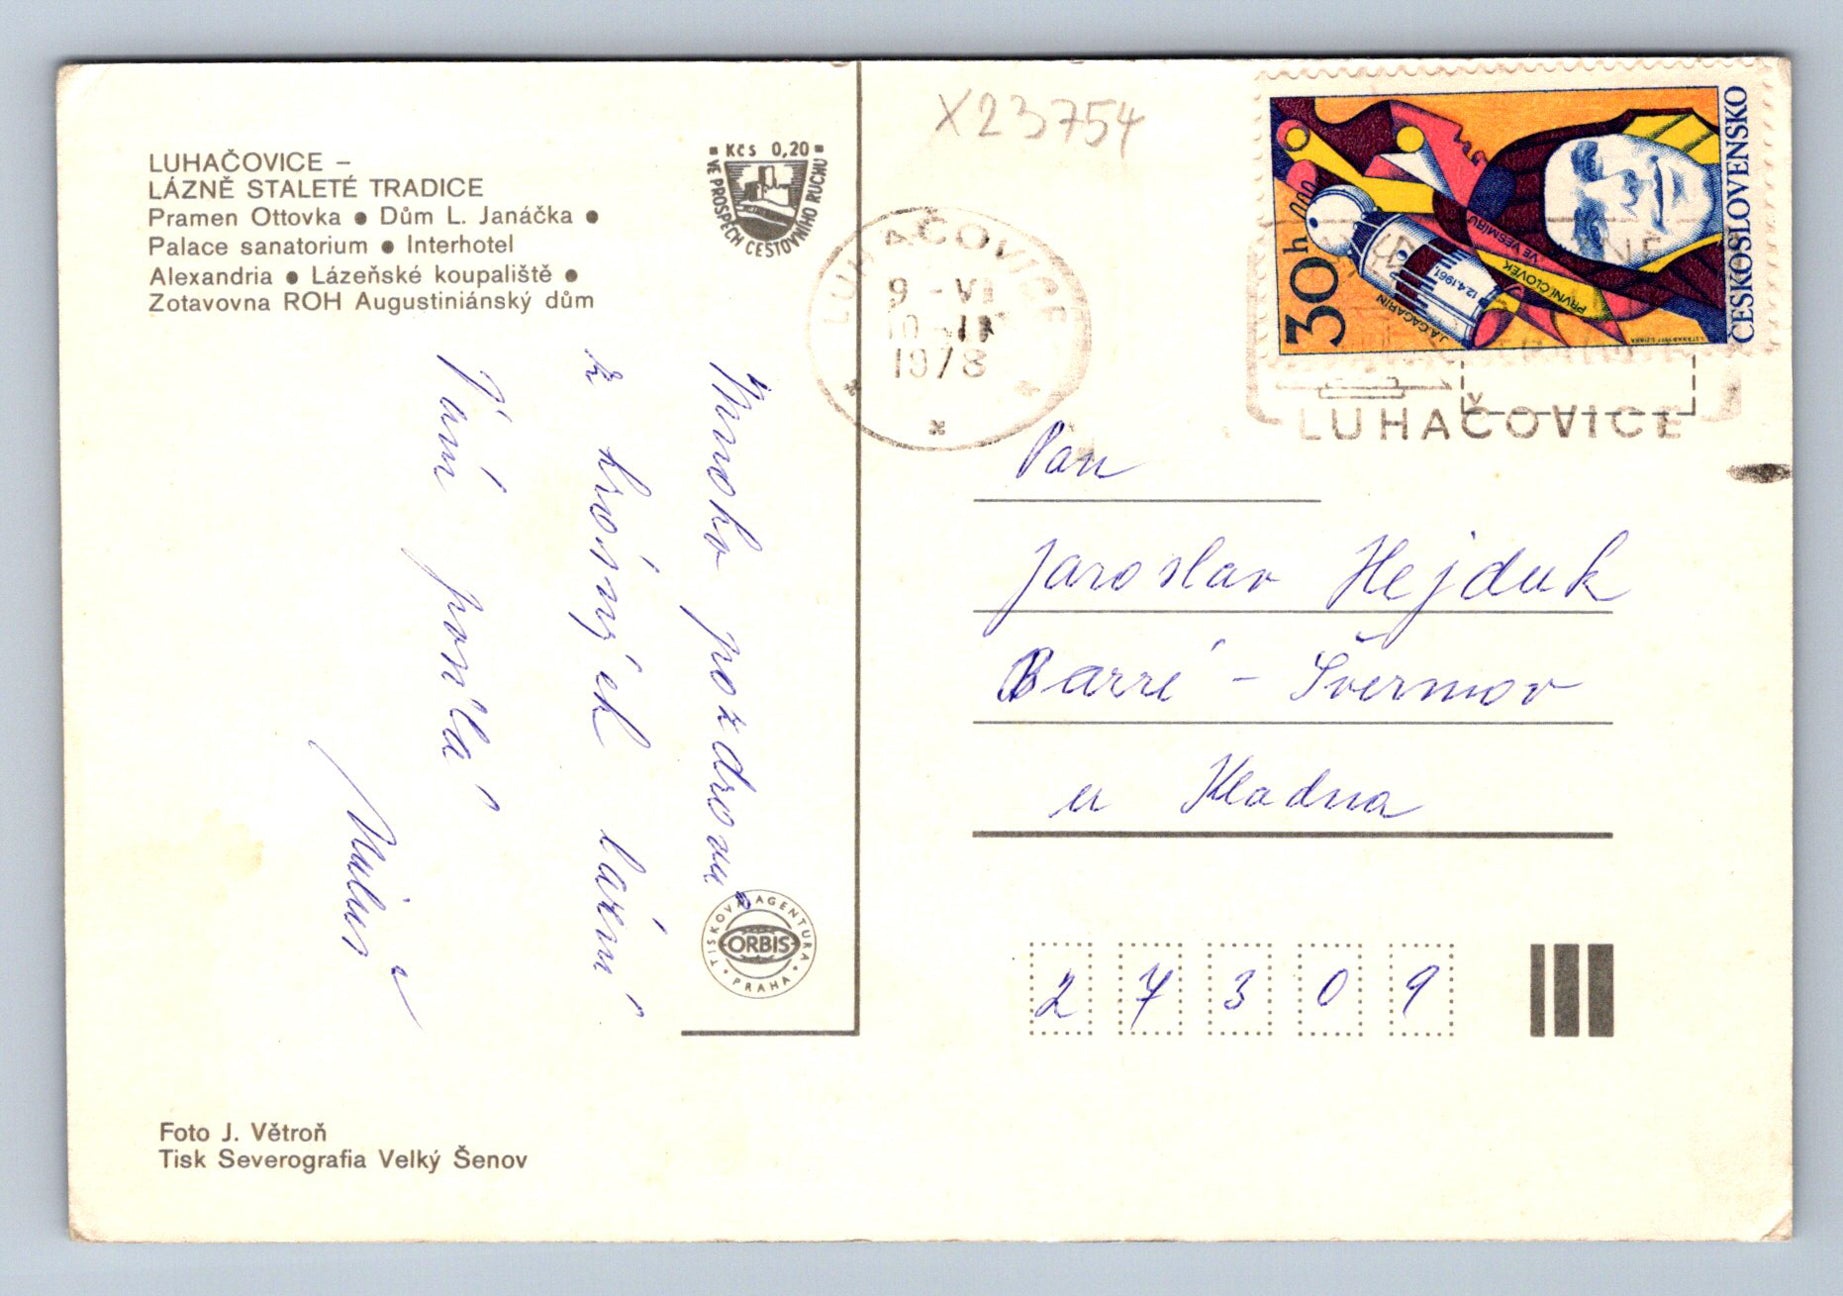 LUHAČOVICE –
LÁZNĚ STALETÉ TRADICE
Pramen Ottovka ● Dům L. Janáčka ●
Palace sanatorium ● Interhotel
Alexandria ● Lázeňské koupaliště ●
Zotavovna ROH Augustiniánský dům
▪ Kčs 0,20 ▪
VE PROSPĚCH CESTOVNÍHO RUCHU
Mnoho pozdravů
z krásných lázní
Vám posílá
TISKOVÁ AGENTURA
ORBIS
PRAHA
Foto J. Větroň
Tisk Severografia Velký Šenov
X23754
LUHAČOVICE
9 -VI
1978
30h
ČESKOSLOVENSKO
J. A. GAGARIN
12.4.1961
PRVNÍ ČLOVĚK
VE VESMÍRU
LUHAČOVICE
Pan
Jaroslav Hejduk
Barré - Švermov
u Kladna
27309